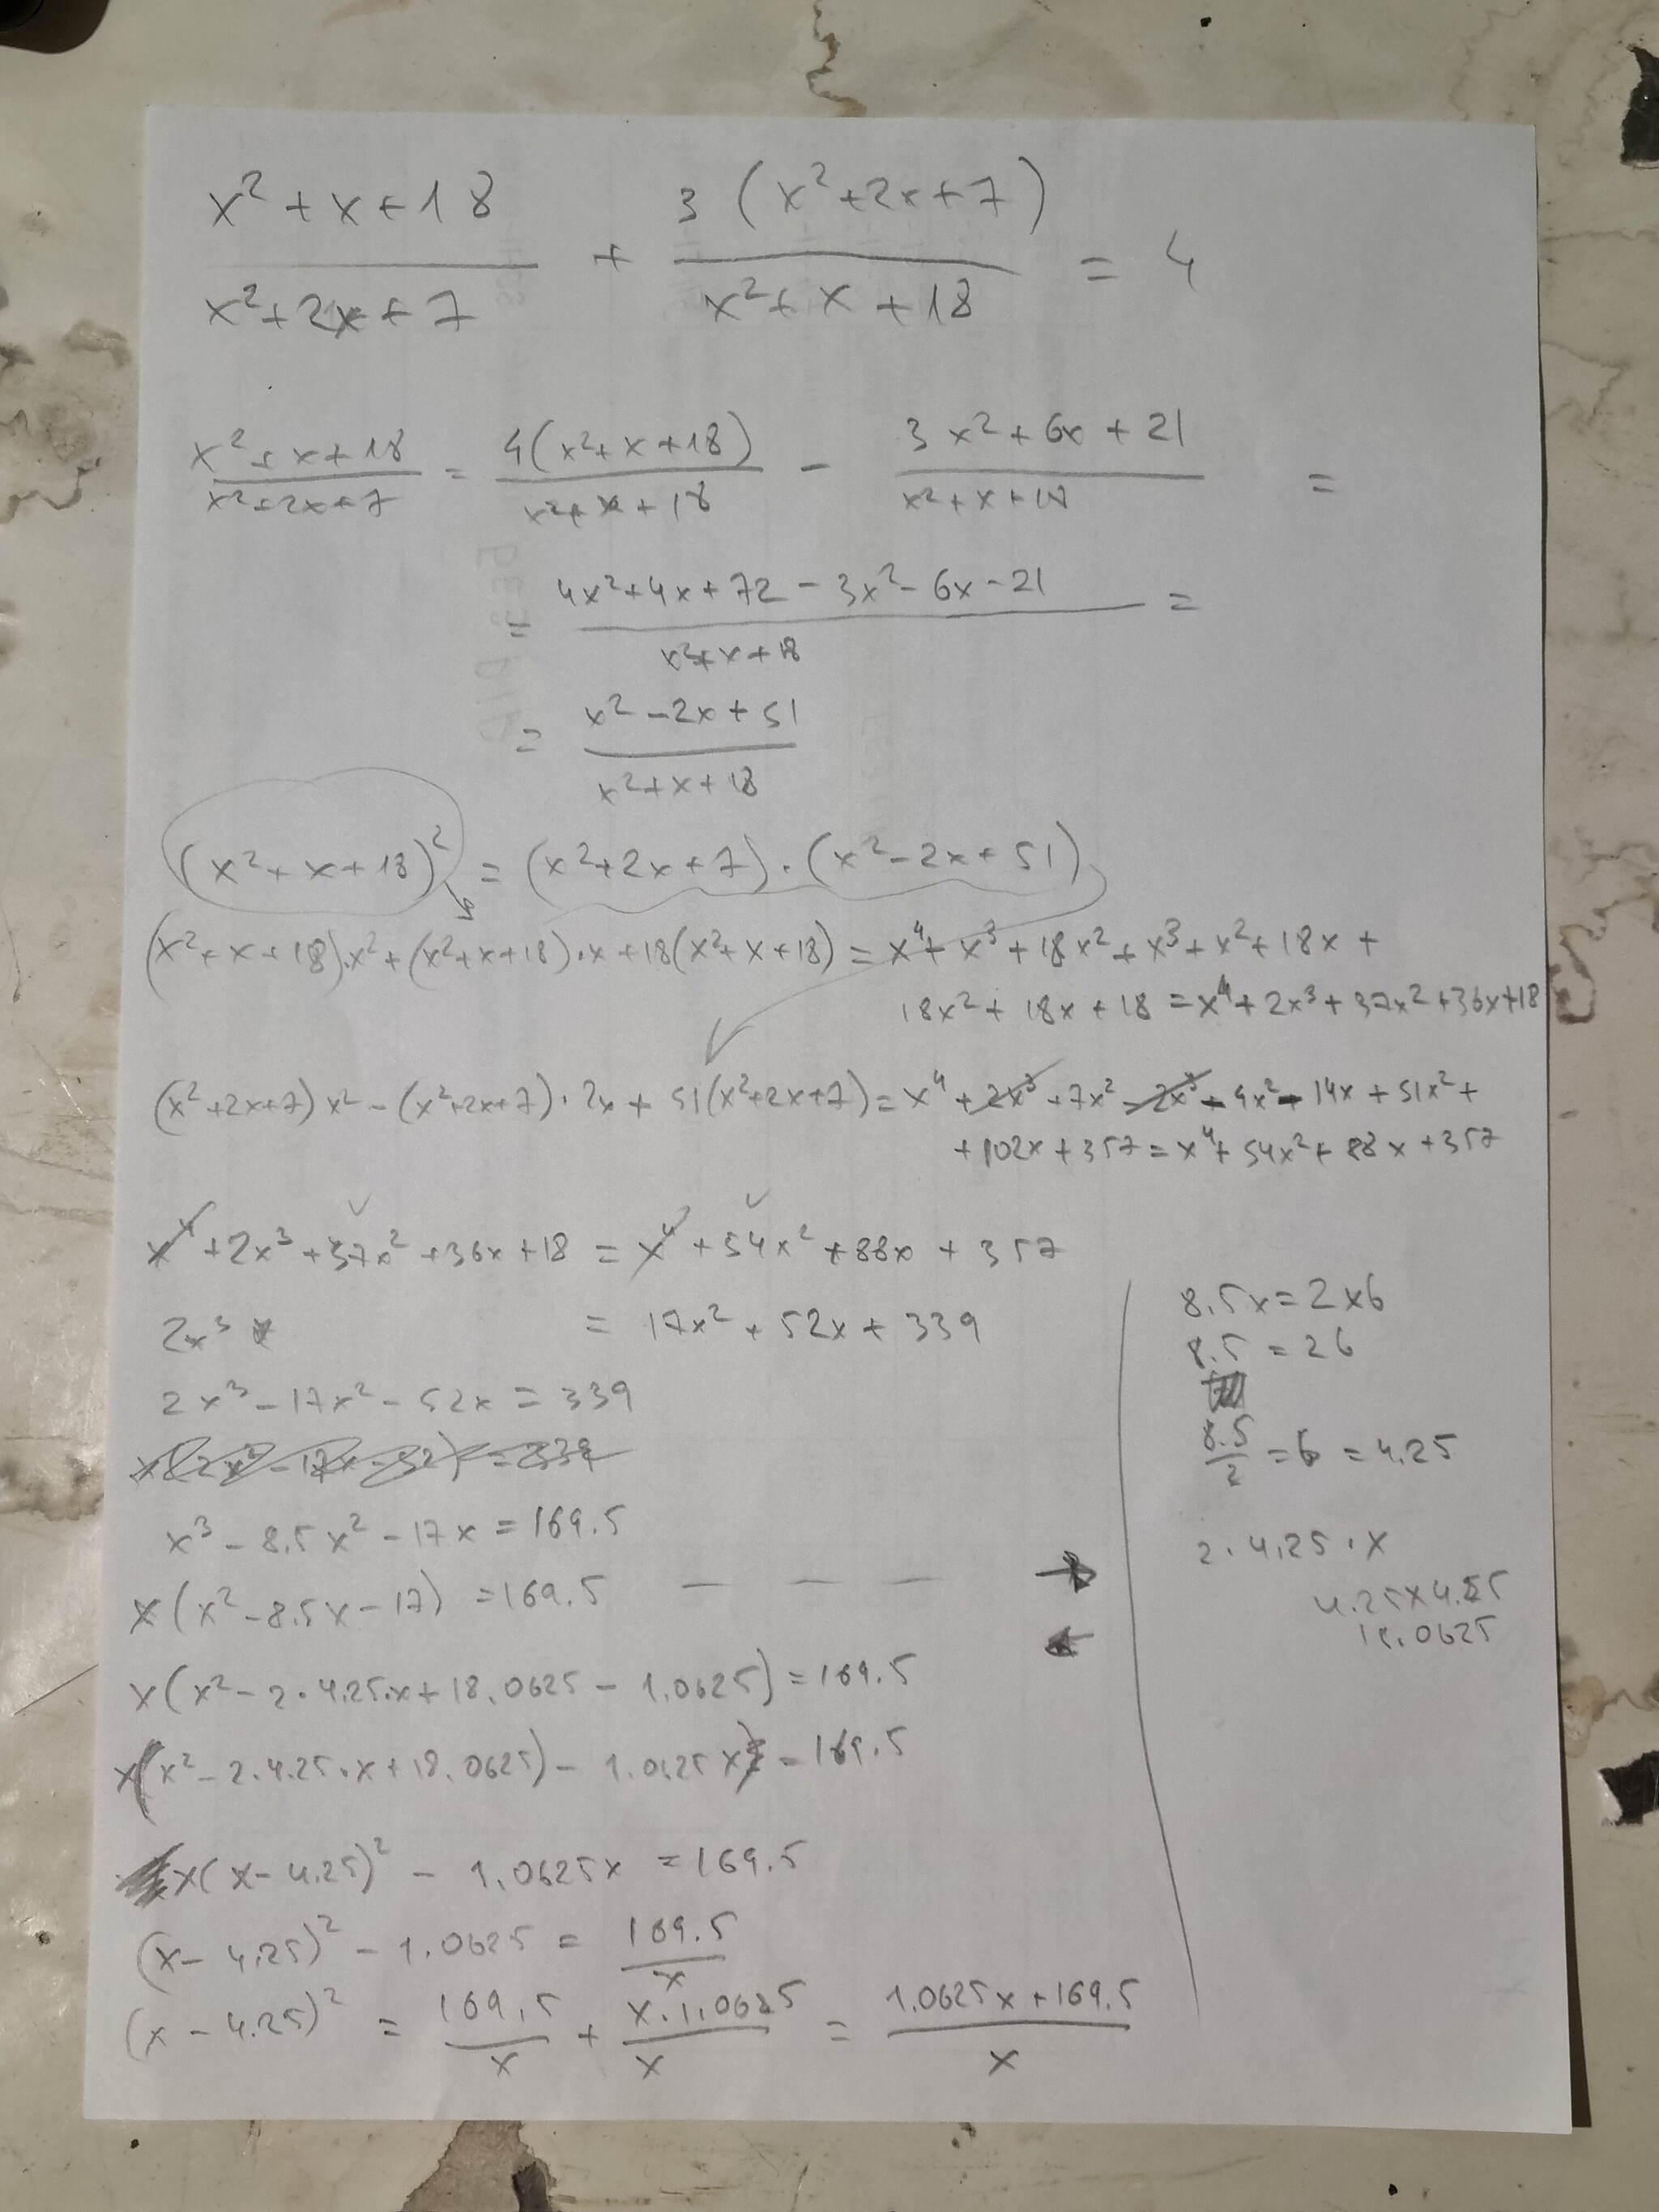 x² + x + 18 / x² + 2x + 7 + 3 (x² + 2x + 7) / x² + x + 18 = 4
x² + x + 18 / x² + 2x + 7 = 4(x² + x + 18) / x² + x + 18 - 3x² + 6x + 21 / x² + x + 18 =
= 4x² + 4x + 72 - 3x² - 6x - 21 / x² + x + 18 =
= x² - 2x + 51 / x² + x + 18
(x² + x + 18)² = (x² + 2x + 7) · (x² - 2x + 51)
(x² + x + 18)·x² + (x² + x + 18)·x + 18(x² + x + 18) = x⁴ + x³ + 18x² + x³ + x² + 18x +
18x² + 18x + 18 = x⁴ + 2x³ + 37x² + 36x + 18
(x² + 2x + 7)x² - (x² + 2x + 7)·2x + 51(x² + 2x + 7) = x⁴ + 2x³ + 7x² - 2x³ - 4x² - 14x + 51x² +
+ 102x + 357 = x⁴ + 54x² + 88x + 357
x⁴ + 2x³ + 37x² + 36x + 18 = x⁴ + 54x² + 88x + 357
2x³ = 17x² + 52x + 339
2x³ - 17x² - 52x = 339
x(2x² - 17x - 52) = 339
x³ - 8.5x² - 17x = 169.5
x(x² - 8.5x - 17) = 169.5 — — — →
←
x(x² - 2·4.25·x + 18.0625 - 1.0625) = 169.5
x(x² - 2·4.25·x + 18.0625) - 1.0625x = 169.5
x(x - 4.25)² - 1.0625x = 169.5
(x - 4.25)² - 1.0625 = 169.5 / x
(x - 4.25)² = 169.5 / x + x·1.0625 / x = 1.0625x + 169.5 / x
8.5x = 2xb
8.5 = 2b
8.5 / 2 = b = 4.25
2·4.25·x
4.25x4.25
18.0625